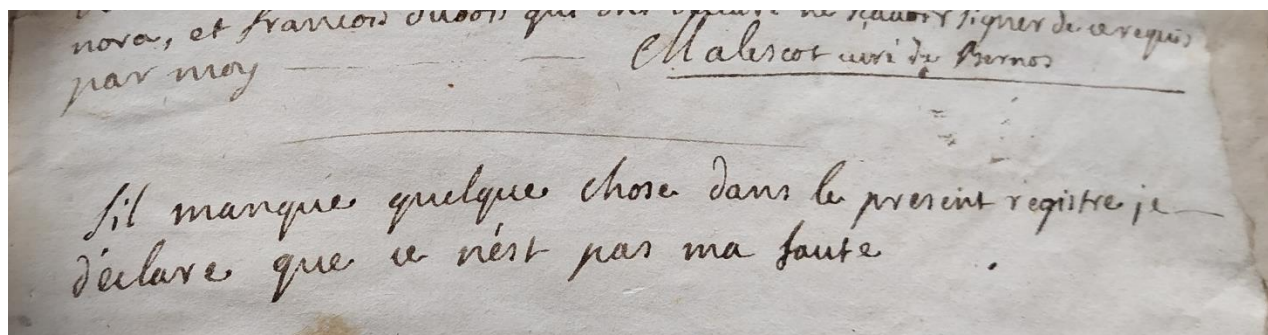 nora, et francois dubois qui ont declaré ne sçavoir signer de ce requis
par moy Malescot curé de Bernos
sil manque quelque chose dans le present registre je
déclare que ce nést pas ma faute